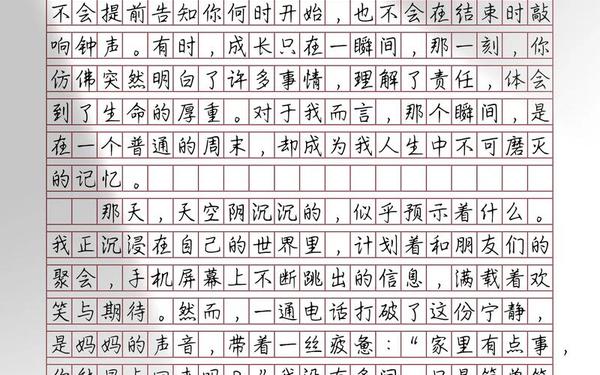 不会提前告知你何时开始，也不会在结束时敲
响钟声。有时，成长只在一瞬间，那一刻，你
仿佛突然明白了许多事情，理解了责任，体会
到了生命的厚重。对于我而言，那个瞬间，是
在一个普通的周末，却成为我人生中不可磨灭
的记忆。
那天，天空阴沉沉的，似乎预示着什么。
我正沉浸在自己的世界里，计划着和朋友们的
聚会，手机屏幕上不断跳出的信息，满载着欢
笑与期待。然而，一通电话打破了这份宁静，
是妈妈的声音，带着一丝疲惫：“家里有点事，